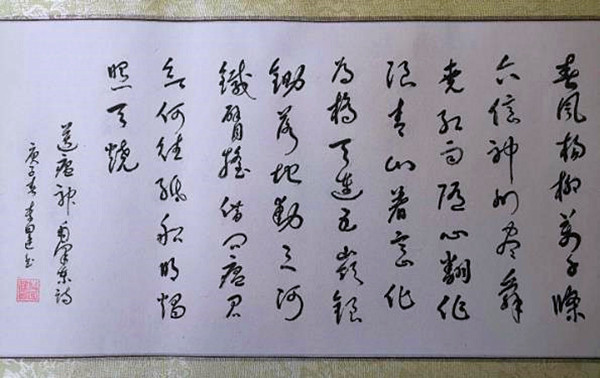 春風楊柳萬千條
六億神州盡舜
堯紅雨隨心翻作
浪青山着意化
為橋天連五嶺銀
鋤落地動三河
鐵臂搖借問瘟君
欲何往紙船明燭
照天燒
送瘟神 毛澤東詩
庚子春 李書